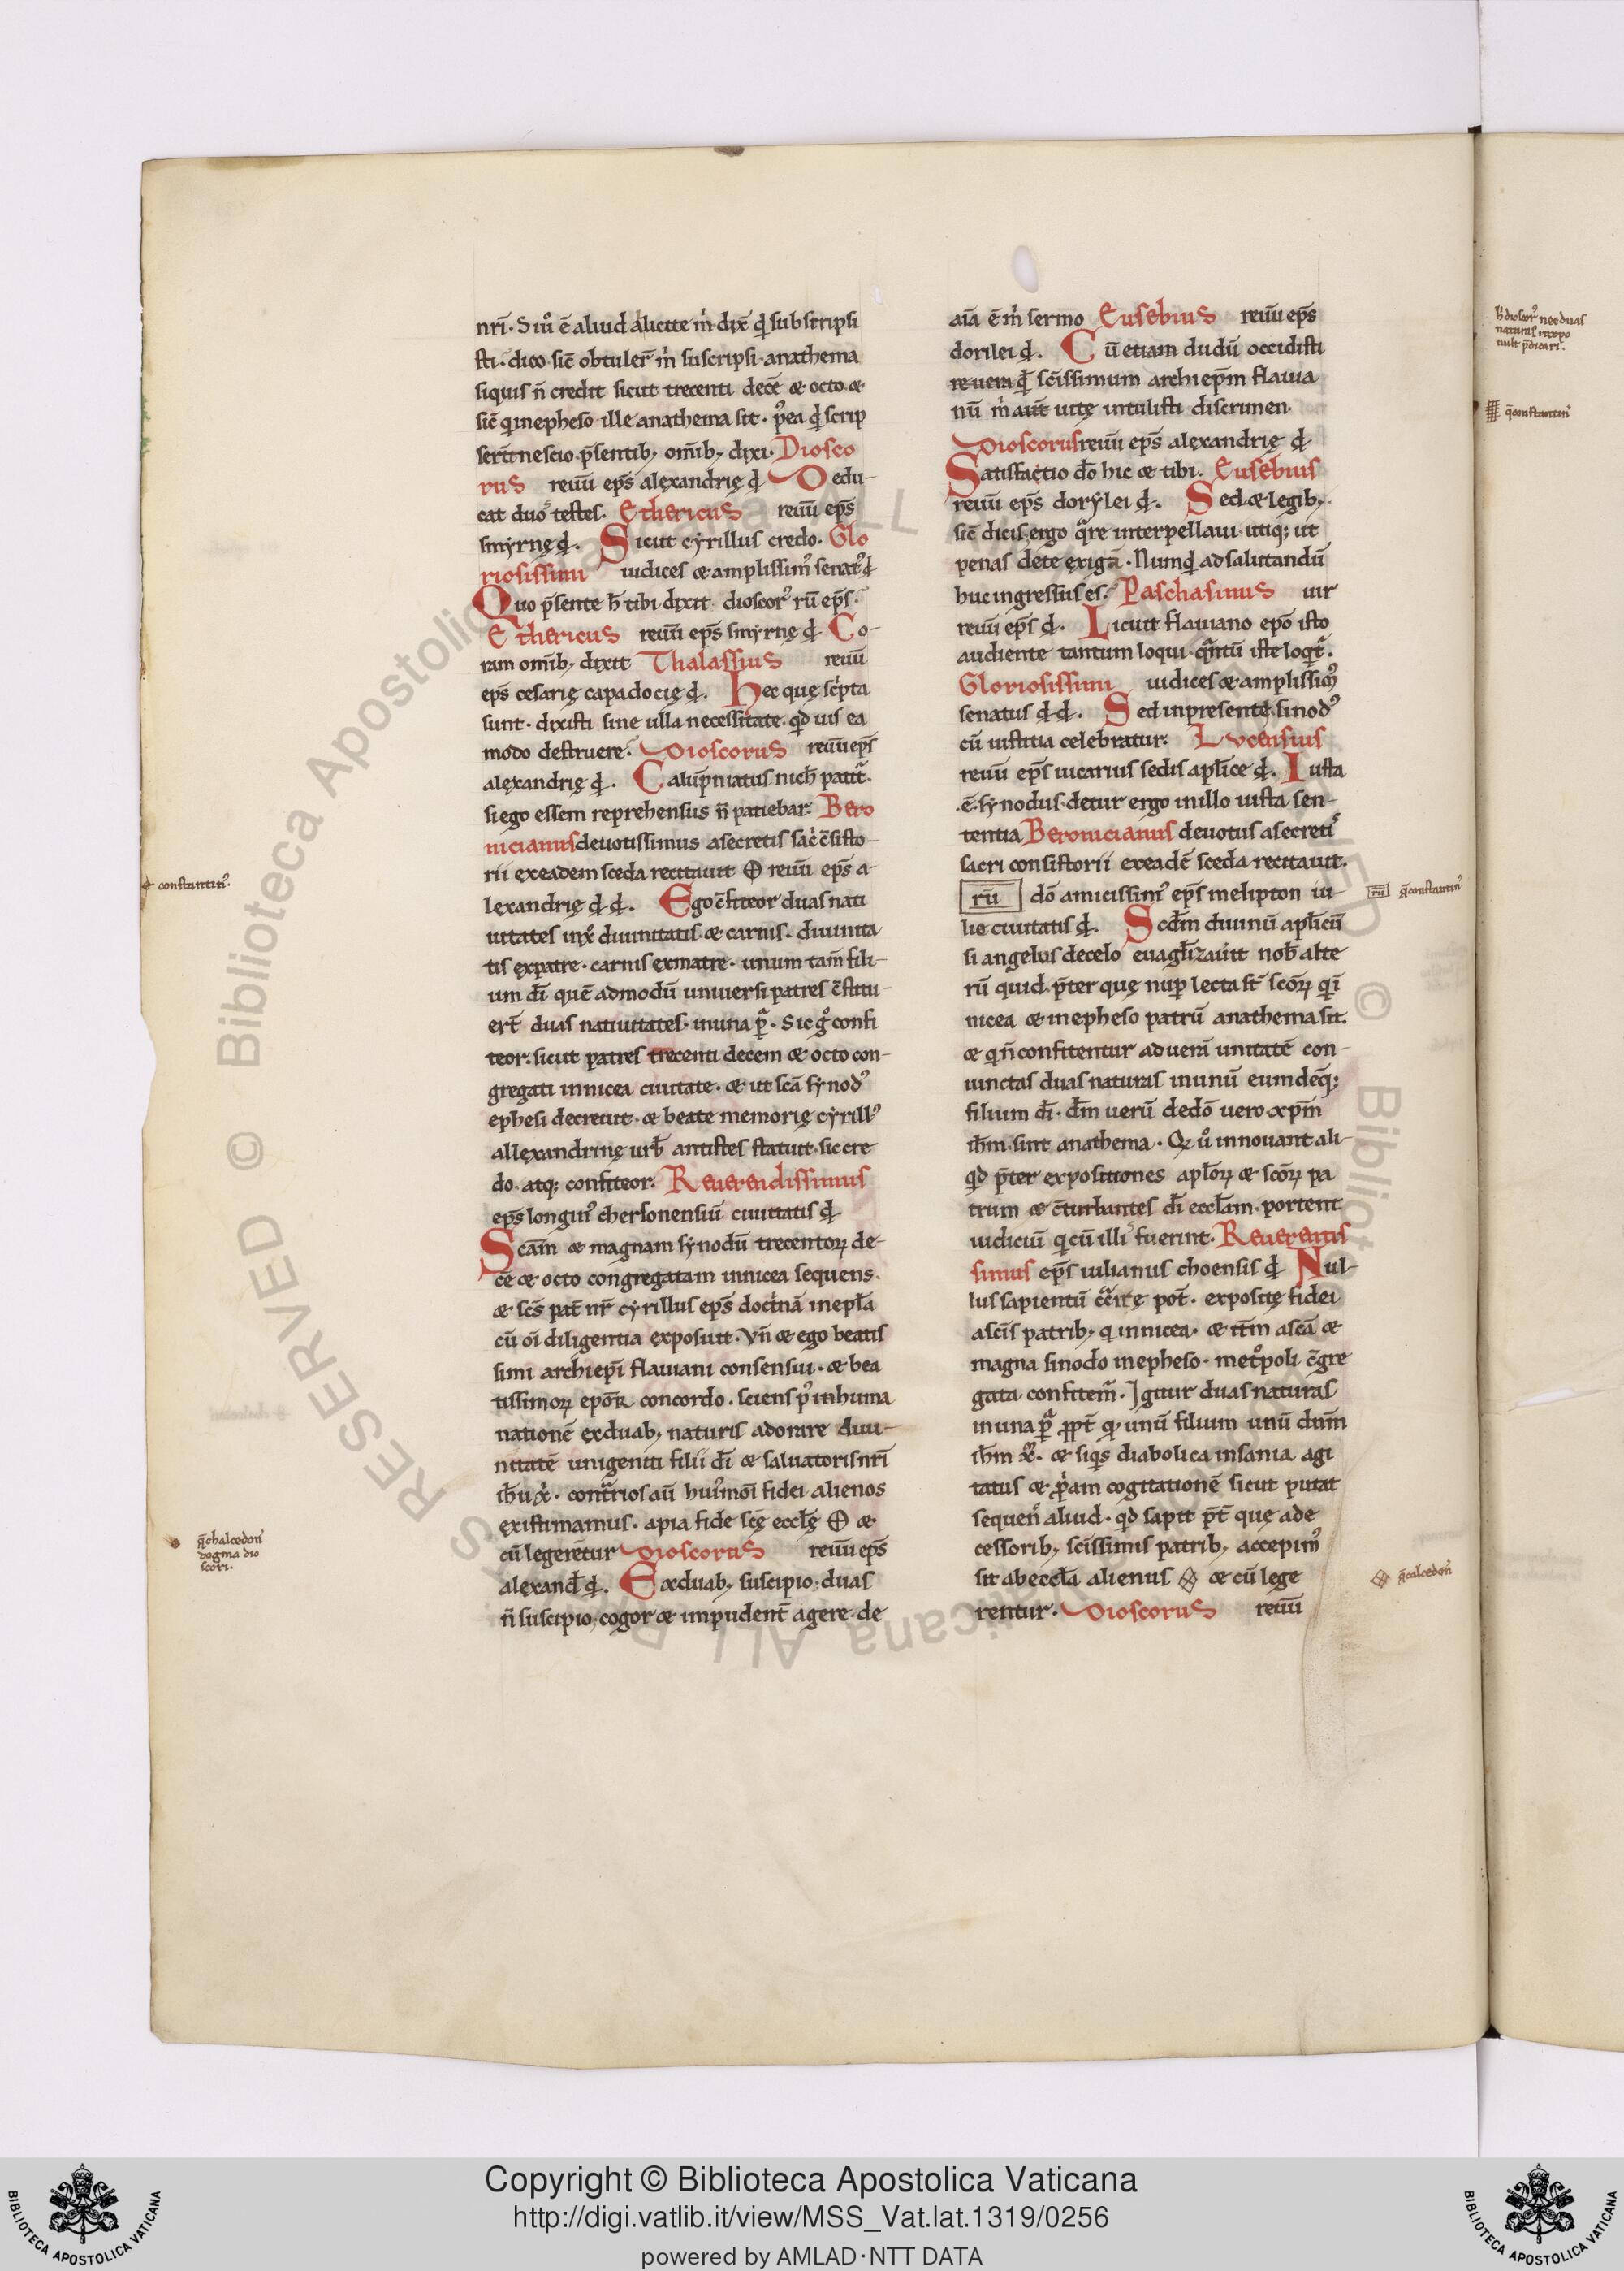 nr̄i · Siu᷎ ē aliud alicite m̍ dix̄ qd̵ subscripsi
sti · dico · sic̄ obtuler̄ m̍ suscripsi · anathema
siquis n̄ credit sicut trecenti decē & octo · &
sic̄ qi inepheso ille anathema sit · p̓ea qd̵ scrip
serūt nescio p̄sentib; om̄ib; dixi · Diosco
rus reuū ep̄s alexandrię qd̵ Dedu-
cat duos testes. Ethericus reuū ep̄s
smyrnę qd̵. Sicut cyrillus credo. Glo
riosissimi iudices & amplissim᷒ senat᷒ qd̵
Quo p̄sente h̄ tibi dixit dioscor᷒ rū ep̄s ·
Ethericus reuū ep̄s smyrnę qd̵ Co-
ram om̄ib; dixit Thalassius reuū
ep̄s cesarię capadocię qd̵. Hec que sc̍pta
sunt · dixisti sine ulla necessitate · qd̵ uis ea
modo destruere? Dioscorus reuū ep̄s
alexandrię qd̵. Calūpniatus nich̄ patit᷑.
si ego essem reprehensus n̄ patiebar. Bero
nicianus deuotissimus asecretis sac̍ c̄sisto-
rii exeadem sceda recitauit reuū ep̄s a-
lexandrię qd̵ qd̵. Ego c̄fiteor duas nati
uitates inx᷎ diuinitatis & carnis. diuinita
tis expatre · carnis exmatre · unum tam̄ fili-
um d̄i quē admodū uniuersi patres c̄stitu-
ert̄ duas natiuitates · inuna p̱ᷓ · Sic g᷎ confi
teor. sicut patres trecenti decem & octo con-
gregati innicea ciuitate · & ut sc̄a synod᷒
ephesi decreuit · & beate memorię cyrill᷒
allexandrinę urb̄ antistes statuit · sic cre
do. atq; confiteor. Reuerendissimus
ep̄s longin᷒ chersonensiū ciuitatis qd̵
Sc̄am & magnam synodū trecentoꝝ de-
cē & octo congregatam innicea sequens.
& sc̄s pat̄ nr̄ cyrillus ep̄s doct̍nā ineph̄a
cū oī diligentia exposuit · Vn̄ & ego beatis
simi archiep̄i flauiani consensui · & bea
tissimoꝝ epōꝝ concordo. sciens p᷒ inhuma
nationē exduab; naturis adorare diui-
nitatē unigeniti filii d̄i & saluatoris nr̄i
ih̄u x̍ · contᷓrios aū hui᷒moī fidei alienos
existimamus · apia fide scę eccl̄ę &
cū legerētur Dioscorus reuū ep̄s
alexand̄ qd̵. Exduab; suscipio · duas
n̄ suscipio, cogor & impudent̄ agere · de
aīa ē m̍ sermo Eusebius reuū ep̄s
dorilei qd̵. Cū etiam dudū occidisti
reuera qd̵ sc̄issimum archiep̄m flauia
nū m̍ aut̄ uitę intulisti discrimen.
Dioscorus reuū ep̄s alexandrię qd̵
Satisfactio d̄o hic & tibi. Eusebius
reuū ep̄s dorylei qd̵. Sed & legib;.
sic̄ dicis. ergo qᷓre interpellaui · utiq; ut
penas dete exigā · Numqd̵ ad salutandū
huc ingressus es? Paschasinus uir
reuū ep̄s qd̵. Licuit flauiano ep̄o isto
audiente tantum loqui · qᷓntū iste loqit᷑.
Gloriosissimi iudices & amplissim᷒
senatus qd̵ qd̵. Sed inpresente sinod᷒
cū iustitia celebratur. Lucensius
reuū ep̄s uicarius sedis apl̄ice qd̵. Iusta
.ē. synodus · detur ergo inillo iusta sen-
tentia Beronicianus deuotus asecretis
sacri consistorii exeadē sceda recitauit.
rū dō amicissim᷒ ep̄s melipton iu-
lio ciuitatis qd̵. Scd̄m diuinū apl̄icū
si angelus decelo euagl̄izauit nob̄ alte
rū quid · p̄ter quę nup̱ lecta st̄ sc̄oꝝ qi ī
nicea & inepheso patrū anathema sit.
& qi n̄ confitentur ad uerā unitatē con-
iunctas duas naturas inunū eumdēq;
filium d̄i · d̄m uerū dedō uero & xp̄m
ih̄m sint anathema · Qi u᷎ innouant ali-
qd̵ p̄ter expositiones apl̄oꝝ & sc̄oꝝ pa
trum & c̄turbantes d̄i eccl̄am · portent
iudiciū qi cū illis fuerint · Reuerentis
simus ep̄s iulianus choensis qd̵ Nul-
lus sapientū c̄tᷓire pot̄ · expositę fidei
asc̄is patrib; qi innicea · & it̄m asc̄a &
magna sinodo inepheso · met᷎poli c̄gre
gata confitem᷑ · Igitur duas naturas
inuna p̱ᷓ ꝓpt̄ qi unū filium unū dn̄m
ih̄m x᷎. & siqis diabolica insania agi
tatus & p̍am cogitationē sicut putat
sequen̄ aliud · qd̵ sapit p̄t que ade
cessorib; sc̄issimis patrib; accepim᷒
sit abeccl̄a alienus & cū lege
rentur. Dioscorus reuū
constantin᷒.
q̄ chalcedon̄
dogma dio
scori.
rū q̄ constantin᷒
q̄ calcedon̄
h̄ dioscor᷒ nec duas
naturas
uult p̄dicari.
q̄ constantin᷒
Copyright © Biblioteca Apostolica Vaticana
http://digi.vatlib.it/view/MSS_Vat.lat.1319/0256
powered by AMLAD·NTT DATA
BIBLIOTECA APOSTOLICA VATICANA
BIBLIOTECA APOSTOLICA VATICANA